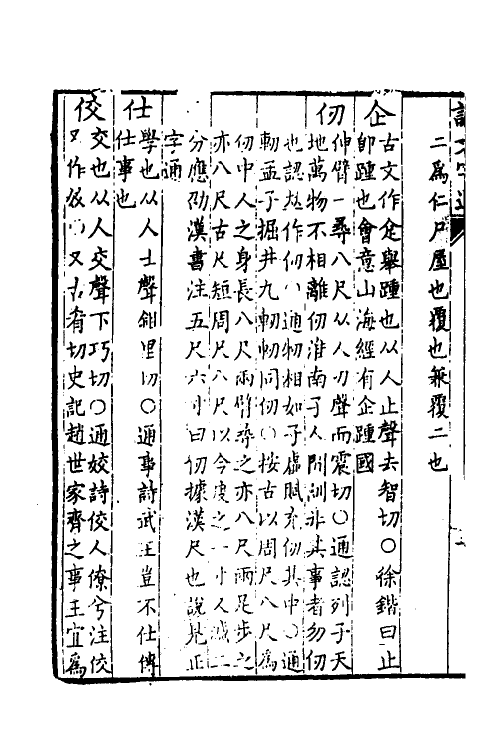 二爲仁尸屋也覆也兼覆二也
企
古文作𠈮舉踵也从人止聲去智切○徐鍇曰止
卽踵也會意山海經有企踵國
仞
伸臂一尋八尺从人刃聲而震切○通認列子天
地萬物不相離仞淮南子人間訓非其事者勿仞
也認𠀤作仞○通牣相如子虛賦充仞其中○通
軔孟子掘井九軔軔同仞○按古以周尺八尺爲
仞中人之身長八尺兩臂尋之亦八尺兩足步之
亦八尺古尺短周尺八尺以今度之一寸人減二
分應劭漢書注五尺六寸曰仞據漢尺也說見正
字通
仕
學也从人士聲鉏里切○通事詩武王豈不仕傳
仕事也
佼
交也从人交聲下巧切○通姣詩佼人僚兮注佼
又作姣○又古肴切史記趙世家齊之事王宜爲